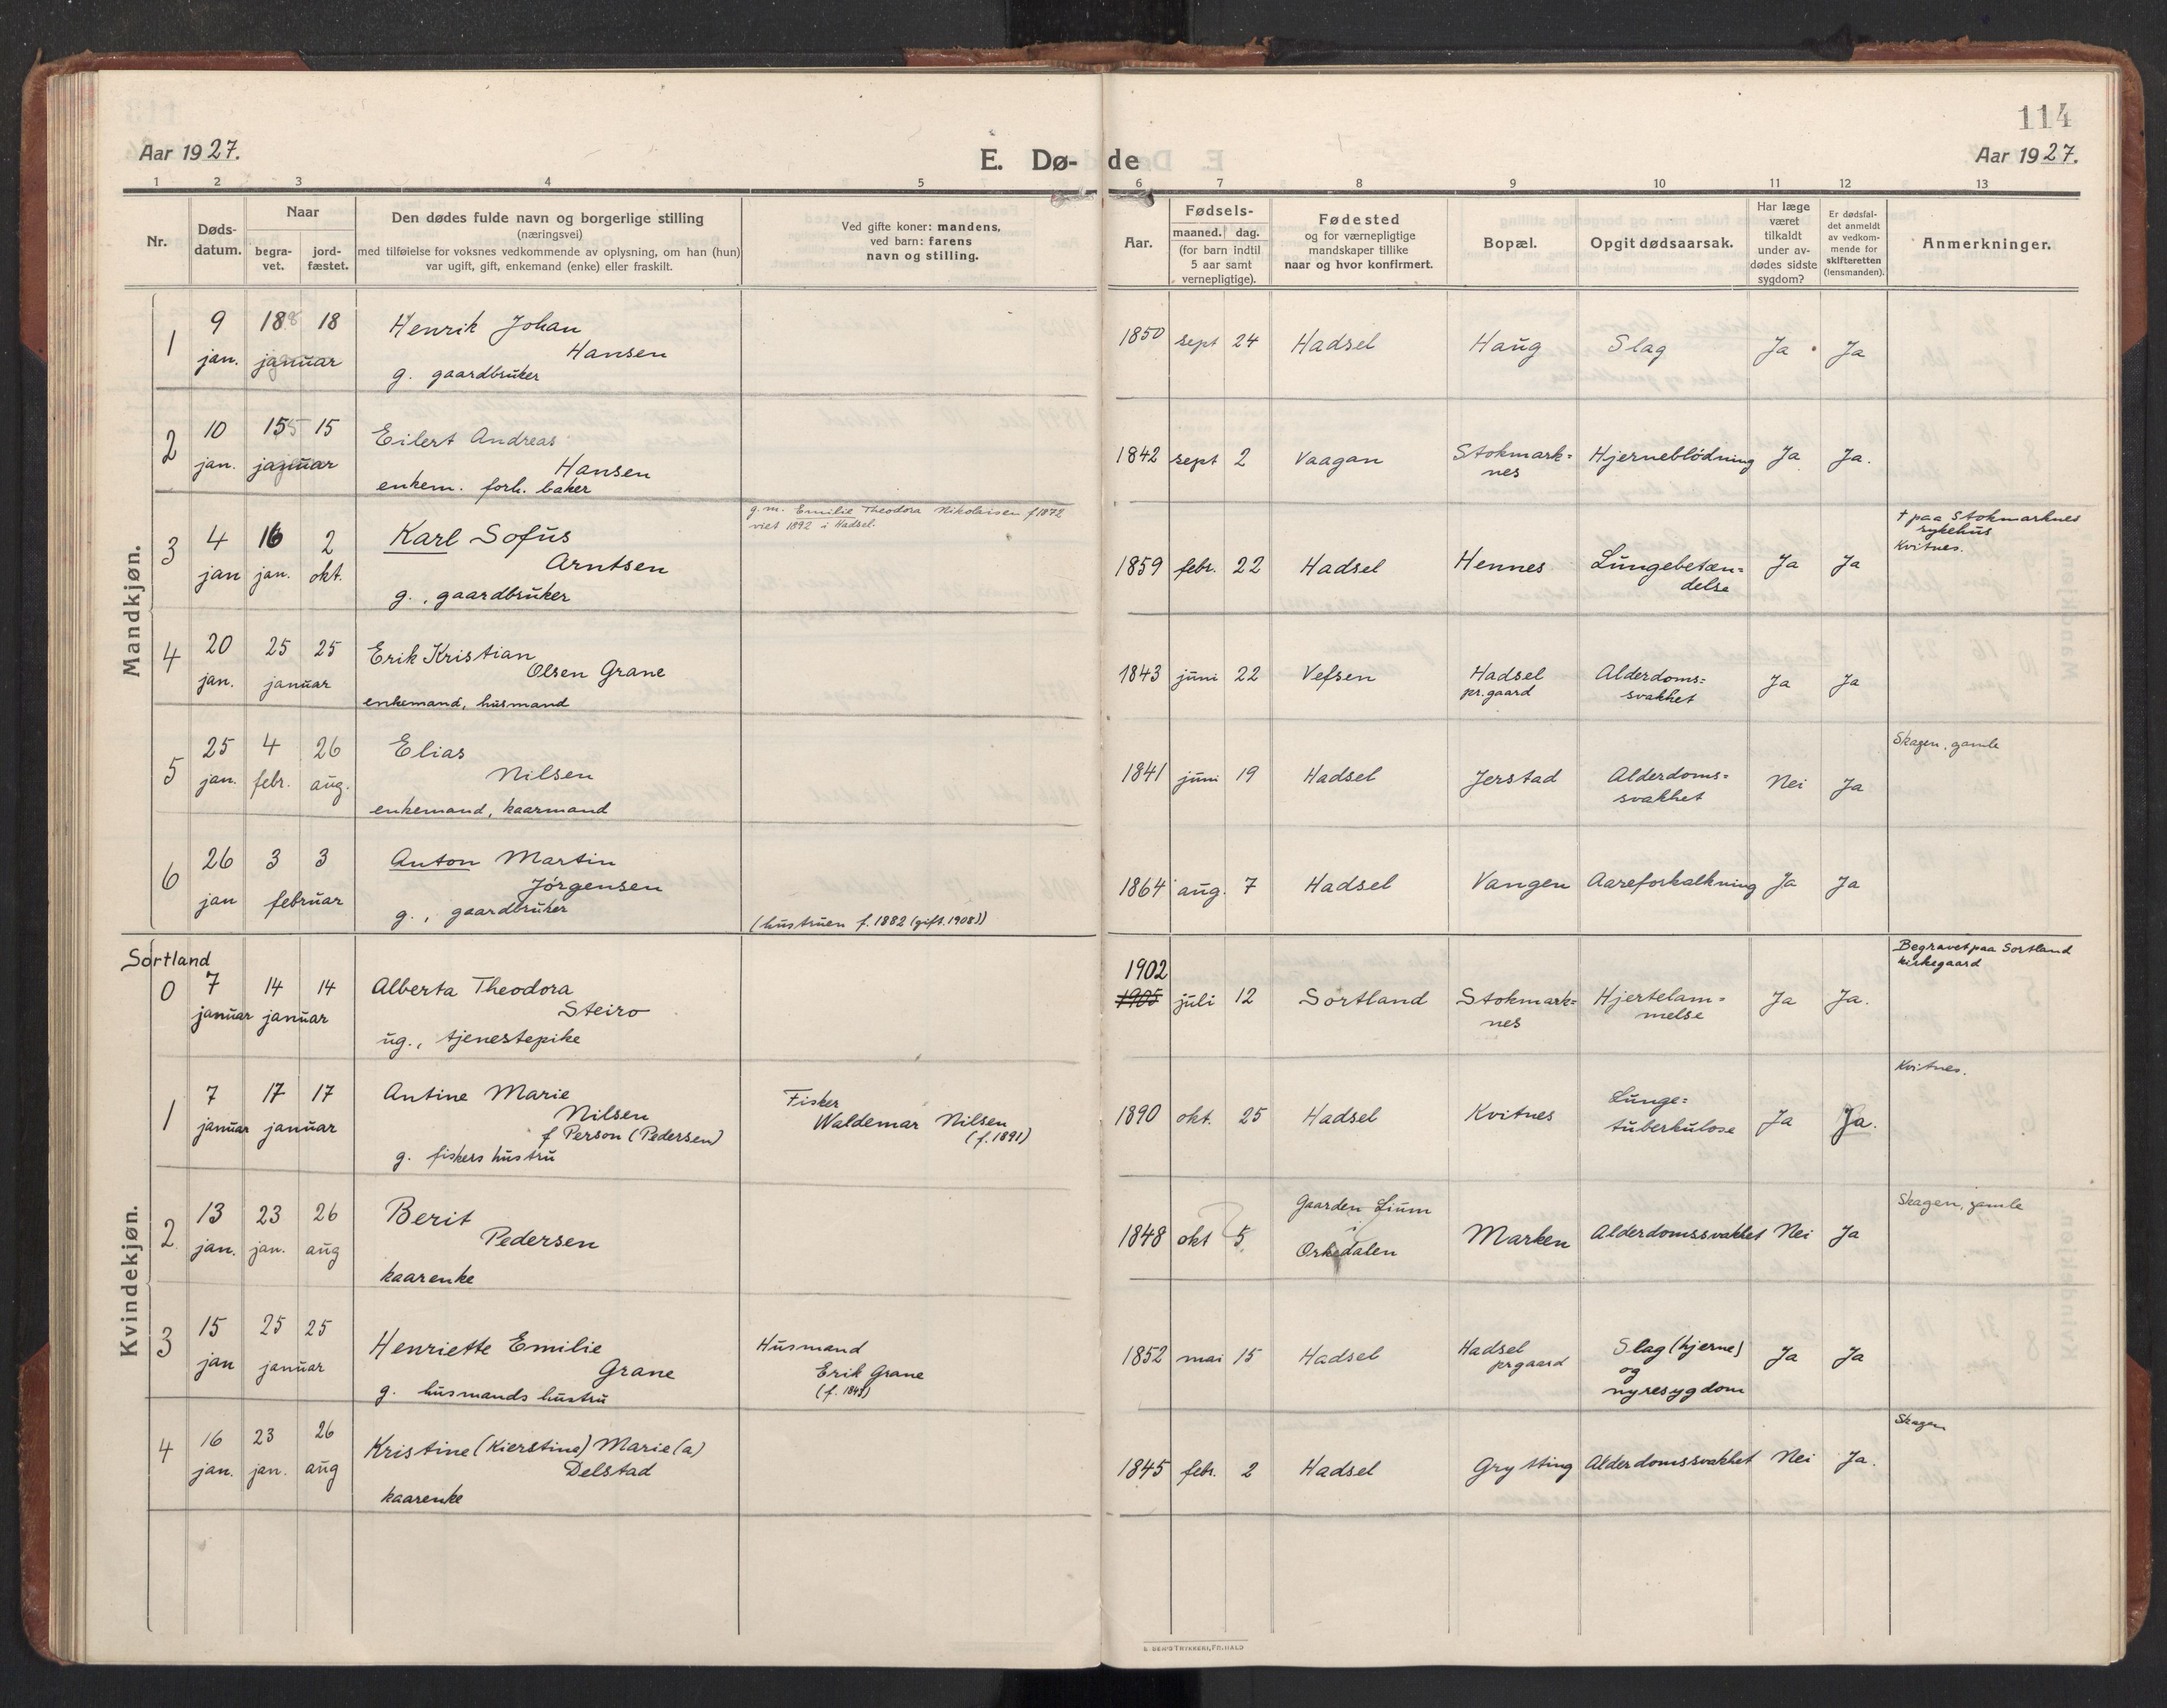 114
Aar 1927.
E. Dø- de
Aar 1927.
1 2 3 4 5 6 7 8 9 10 11 12 13
Nr.
Døds-
datum.
Naar
begra-
vet.
jord-
fæstet.
Den dødes fulde navn og borgerlige stilling
(næringsvei)
med tilføielse for voksnes vedkommende av oplysning, om han (hun)
var ugift, gift, enkemand (enke) eller fraskilt.
Ved gifte koner: mandens,
ved barn: farens
navn og stilling.
Aar.
Fødsels-
maaned. dag.
(for barn indtil
5 aar samt
vernepligtige).
Fødested
og for værnepligtige
mandskaper tillike
naar og hvor konfirmert.
Bopæl.
Opgit dødsaarsak.
Har læge
været
tilkaldt
under av-
dødes sidste
sygdom?
Er dødsfal-
det anmeldt
av vedkom-
mende for
skifteretten
(lensmanden).
Anmerkninger.
Mandkjøn.
1
9 18 18
jan. januar
Henrik Johan
Hansen
g. gaardbruker
1850 sept 24 Hadsel Haug Slag Ja Ja
2
10 15 15
jan. januar
Eilert Andreas
Hansen
enkem. forh. baker
1842 sept 2 Vaagan Stokmark=
nes
Hjerneblödning Ja Ja.
3
4 16 2
jan jan. okt.
Karl Sofus
Arntsen
g., gaardbruker
g.m. Emilie Theodora Nikolaisen f 1872
viet 1892 i Hadsel.
1859 febr. 22 Hadsel Hennes Lungebetæn=
delse
Ja Ja
† paa Stokmarknes
sykehus
Kvitnes.
4
20 25 25
jan. januar
Erik Kristian
Olsen Grane
enkemand, husmand
1843 juni 22 Vefsen Hadsel
pr.gaard
Alderdoms=
svakhet
Ja Ja
5
25 4 26
jan. febr. aug.
Elias
Nilsen
enkemand, kaarmand
1841 juni 19 Hadsel Jerstad Alderdoms=
svakhet
Nei Ja
Skagen, gamle
6
26 3 3
jan februar
Anton Martin
Jörgensen
g., gaardbruker
(hustruen f. 1882 (gift. 1908))
1864 aug. 7 Hadsel Vangen Aareforkalkning Ja Ja
Kvindekjøn.
Sortland
0
7 14 14
januar januar
Alberta Theodora
Steiro
ug., tjenestepike
1902
1905 juli 12 Sortland Stokmark=
nes
Hjertelam=
melse
Ja Ja.
Begravet paa Sortland
kirkegaard
1
7 17 17
januar januar
Antine Marie
Nilsen
f Person (Pedersen)
g. fiskers hustru
Fisker
Waldemar Nilsen
(f. 1891)
1890 okt. 25 Hadsel Kvitnes Lunge=
tuberkulose
Ja Ja.
Kvitnes.
2
13 23 26
jan. jan. aug
Berit
Pedersen
kaarenke
1848 okt 5. Gaarden Lium
i
Orkedalen
Marken Alderdomssvakhet Nei Ja
Skagen, gamle
3
15 25 25
jan januar
Henriette Emilie
Grane
g. husmands hustru
Husmand
Erik Grane
(f. 1843)
1852 mai 15 Hadsel Hadsel
prgaard
Slag (hjerne)
og
nyresygdom
Ja Ja
4
16 23 26
jan. jan. aug
Kristine (Kierstine) Marie (a)
Delstad
kaarenke
1845 febr. 2 Hadsel Grytting Alderdomssvakhet Nei Ja.
Skagen